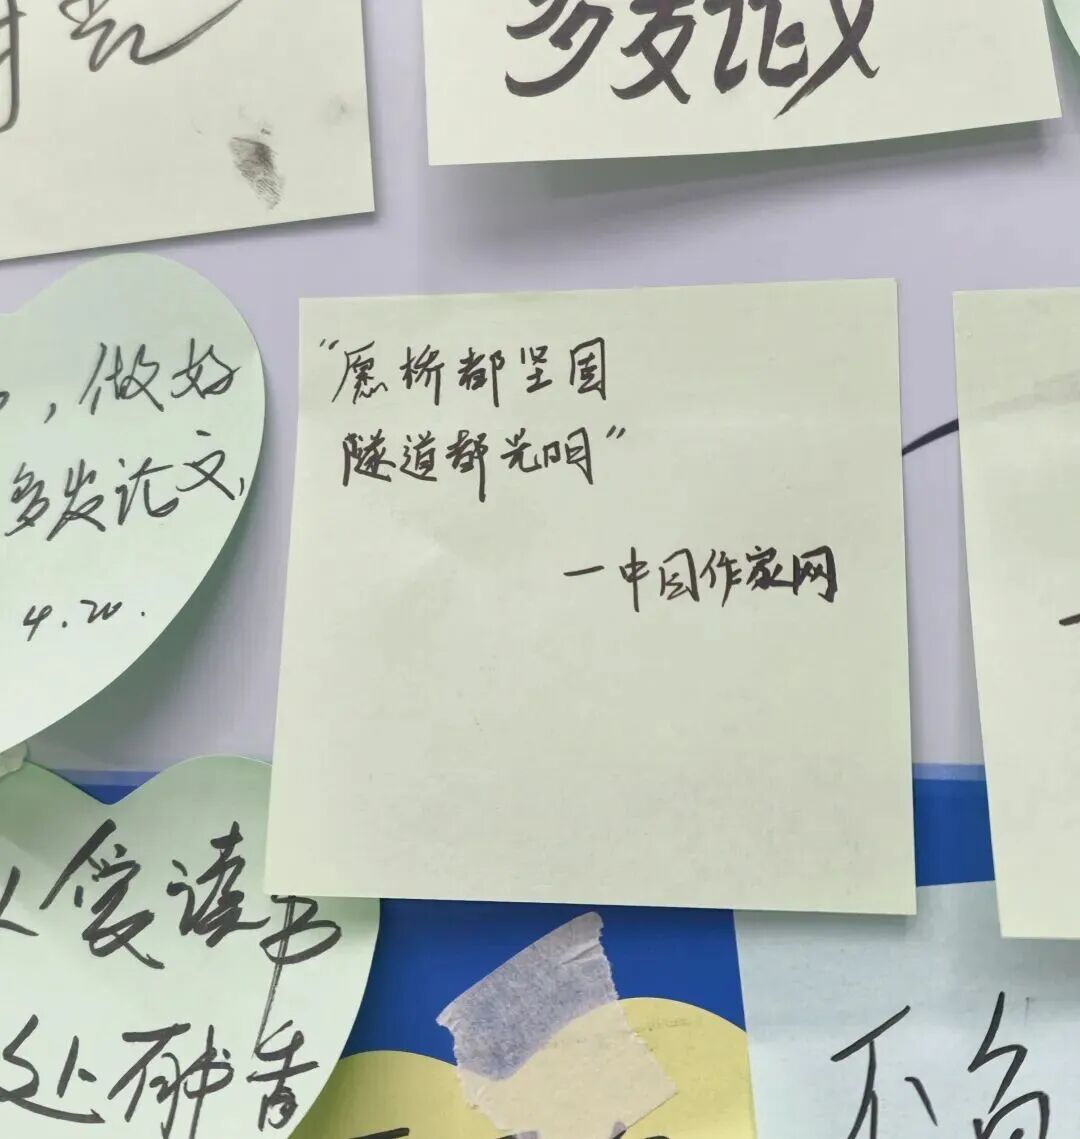 多发论文
"愿桥都坚固
隧道都光明"
一中国作家网
,做好
多发论文,
4.20.
人爱读书
处有书香
不负